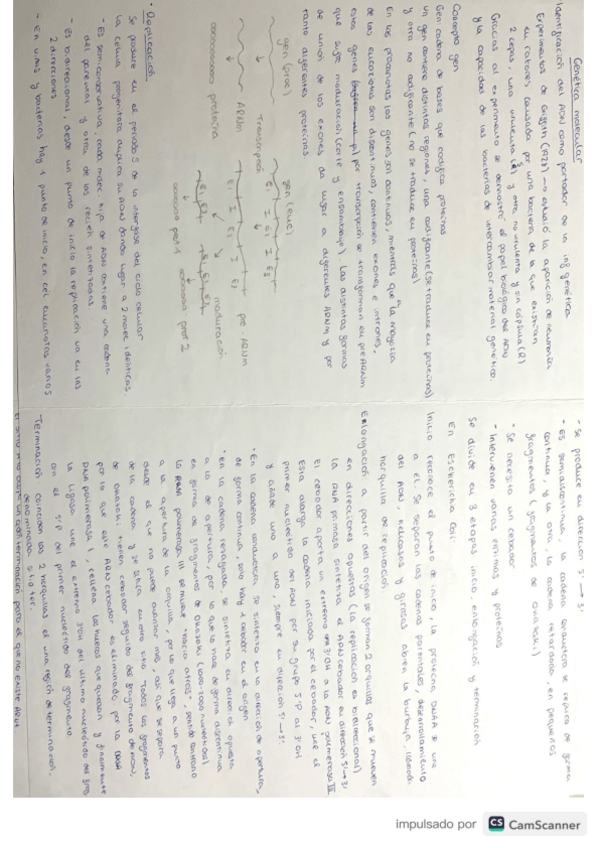 Genética molecular
Identificación del ADN como portador de la inf genética
Experimentos de Griffith (1928) → estudió la aparición de neumonía
en ratones, causada por una bacteria de la que existían
2 cepas, una virulenta (S) y otra no virulenta y sin cápsula (R)
Gracias al experimento se demostró el papel biológico del ADN
y la capacidad de las bacterias de intercambiar material genético.
Concepto gen
Gen: cadena de bases que codifica proteínas
un gen contiene distintas regiones, una codificante (se traduce en proteínas)
y otra no codificante (no se traduce en proteínas)
En los procariotas los genes son continuos, mientras que la mayoría
de los eucariotas son discontinuos, contienen exones e intrones,
estos genes por transcripción se transforman en pre ARNm
que sufre maduración (corte y ensamblaje). Las distintas formas
de unión de los exones da lugar a diferentes ARNm y por
tanto diferentes proteínas
gen (proc) gen (euc)
Transcripción E1 I E2 I E3
ARNm pre-ARNm
maduración
proteína
prot 1 prot 2
· Replicación
Se produce en el periodo S de la interfase del ciclo celular
La célula progenitora duplica su ADN dando lugar a 2 molec idénticas.
- Es semiconservativa, cada molec hija de ADN contiene una cadena
del parental y otra de las recién sintetizadas
- Es bidireccional, desde un punto de inicio la replicación va en las
2 direcciones
- En virus y bacterias hay 1 punto de inicio, en cel eucariotas varios
- Se produce en dirección 5' → 3'
- Es semidiscontinua, la cadena conductora se replica de forma
continua, y la otra, la cadena retardada, en pequeños
fragmentos (fragmentos de Okazaki)
- Se necesita un cebador
- Intervienen varias enzimas y proteínas
Se divide en 3 etapas: inicio, elongación y terminación
En Escherichia Coli:
Inicio: reconoce el punto de inicio, la proteína DnaA se une
a él. Se separan las cadenas parentales, desenrollamiento
del ADN, helicasas y girasas abren la burbuja, llamada
horquilla de replicación
Elongación: a partir del origen se forman 2 horquillas que se mueven
en direcciones opuestas (la replicación es bidireccional)
la primasa sintetiza el ARN cebador en dirección 5' → 3'
El cebador aporta un extremo 3'OH a la ADN polimerasa III
Esta alarga la cadena iniciada por el cebador, une el
primer nucleótido del ADN por su grupo 5'P al 3'OH
y añade uno a uno, siempre en dirección 5' → 3'.
· En la cadena conductora, se sintetiza en la dirección de apertura,
de forma continua, solo hay 1 cebador en el origen
· En la cadena retrasada, se sintetiza en dirección opuesta
a la de apertura, por lo que lo hace de forma discontinua
en forma de fragmentos de Okazaki (1000-2000 nucleótidos)
la polimerasa III se mueve hacia atrás, sentido contrario
a la apertura de la orquilla, por lo que llega a un punto
desde el que no puede avanzar más, así que se separa
de la cadena y se sitúa en otro sitio. Todos los fragmentos
de Okazaki tienen cebador seguido del fragmento de ADN,
por lo que este ARN cebador es eliminado por la
polimerasa I, rellena los huecos que quedan y finalmente
la ligasa une el extremo 3'OH del último nucleótido del frag
con el 5'P del primer nucleótido del fragmento
Terminación: coinciden las 2 horquillas en una región de terminación,
denominada sitio ter.
impulsado por CS CamScanner